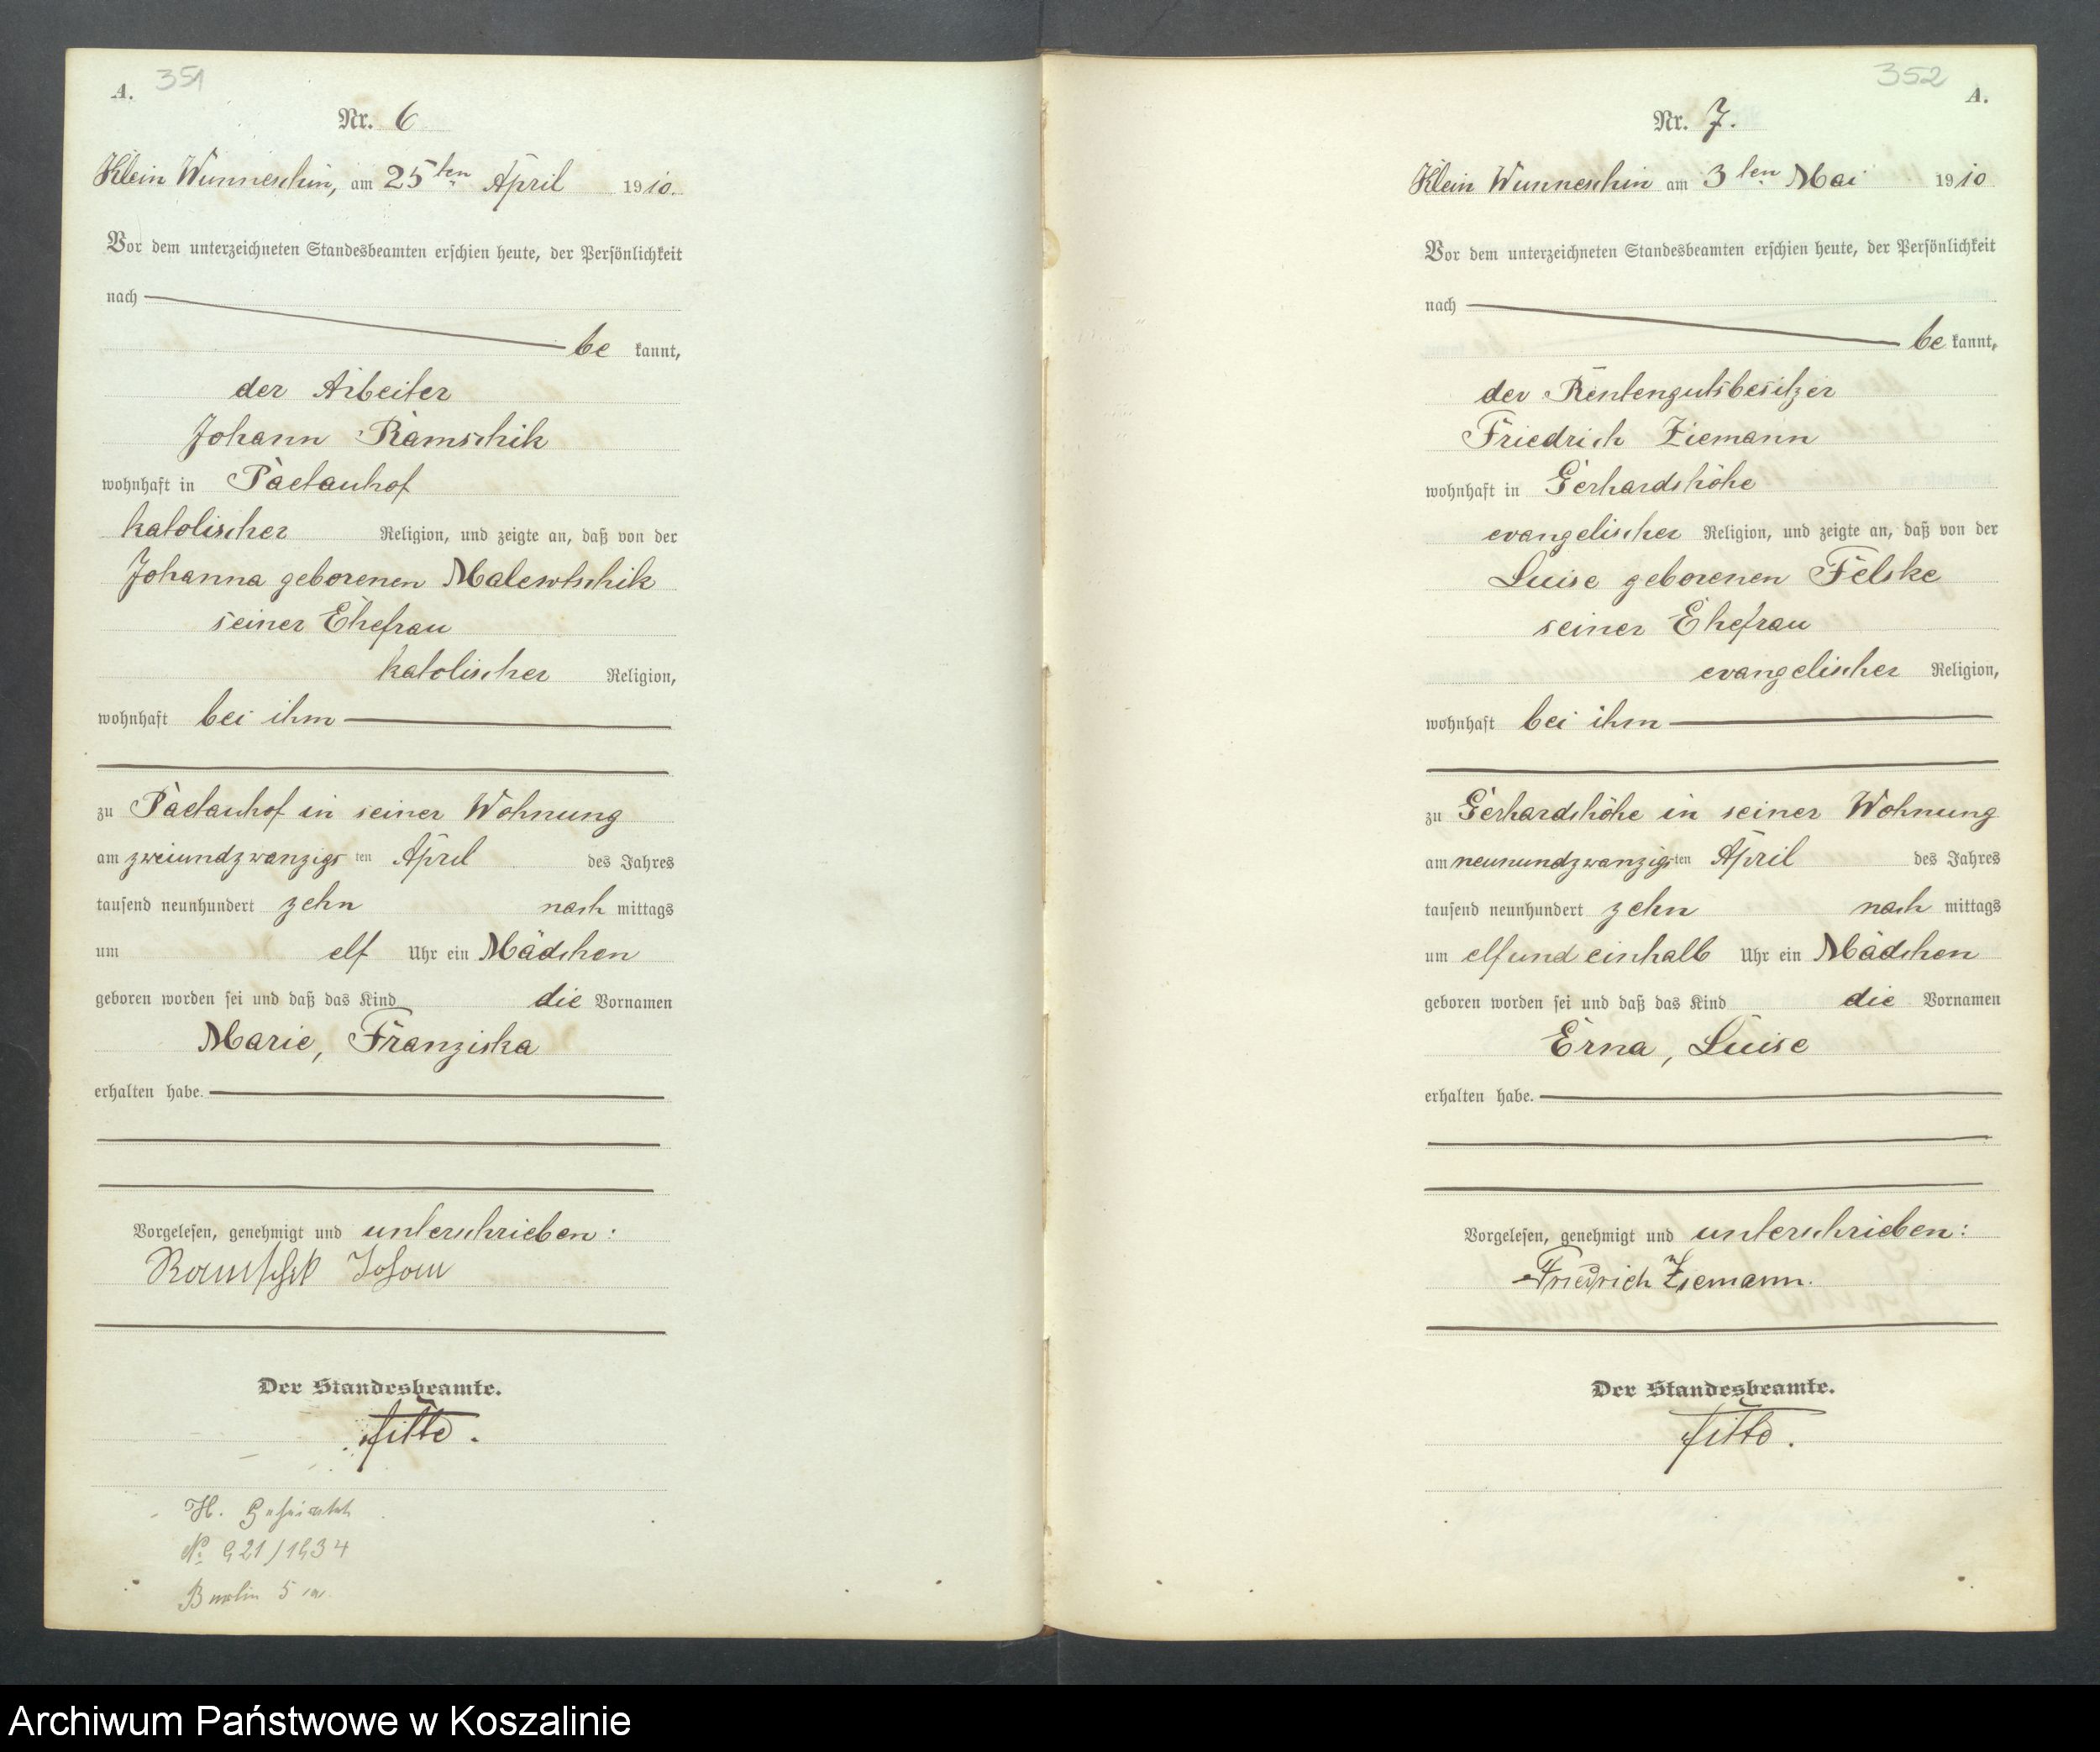 A. 351
Nr. 6
Klein Wunneschin, am 25ten April 1910.
Vor dem unterzeichneten Standesbeamten erschien heute, der Persönlichkeit
nach
be kannt,
der Arbeiter
Johann Ramschik
wohnhaft in Paetauhof
katolischer Religion, und zeigte an, daß von der
Johanna geborenen Malewtschik
seiner Ehefrau
katolischer Religion,
wohnhaft bei ihm
zu Paetauhof in seiner Wohnung
am zweiundzwanzigs ten April des Jahres
tausend neunhundert zehn nach mittags
um elf Uhr ein Mädchen
geboren worden sei und daß das Kind die Vornamen
Marie, Franziska
erhalten habe.
Vorgelesen, genehmigt und unterschrieben:
Ramschik Johan
Der Standesbeamte.
H.
No 921/1934
Berlin 5
352 A.
Nr. 7.
Klein Wunneschin am 3ten Mai 1910
Vor dem unterzeichneten Standesbeamten erschien heute, der Persönlichkeit
nach
be kannt,
der Rentengutsbesitzer
Friedrich Ziemann
wohnhaft in Gerhardshöhe
evangelischer Religion, und zeigte an, daß von der
Luise geborenen Felske
seiner Ehefrau
evangelischer Religion,
wohnhaft bei ihm
zu Gerhardshöhe in seiner Wohnung
am neunundzwanzigsten April des Jahres
tausend neunhundert zehn nach mittags
um elf und einhalb Uhr ein Mädchen
geboren worden sei und daß das Kind die Vornamen
Erna, Luise
erhalten habe.
Vorgelesen, genehmigt und unterschrieben:
Friedrich Ziemann.
Der Standesbeamte.
Archiwum Państwowe w Koszalinie